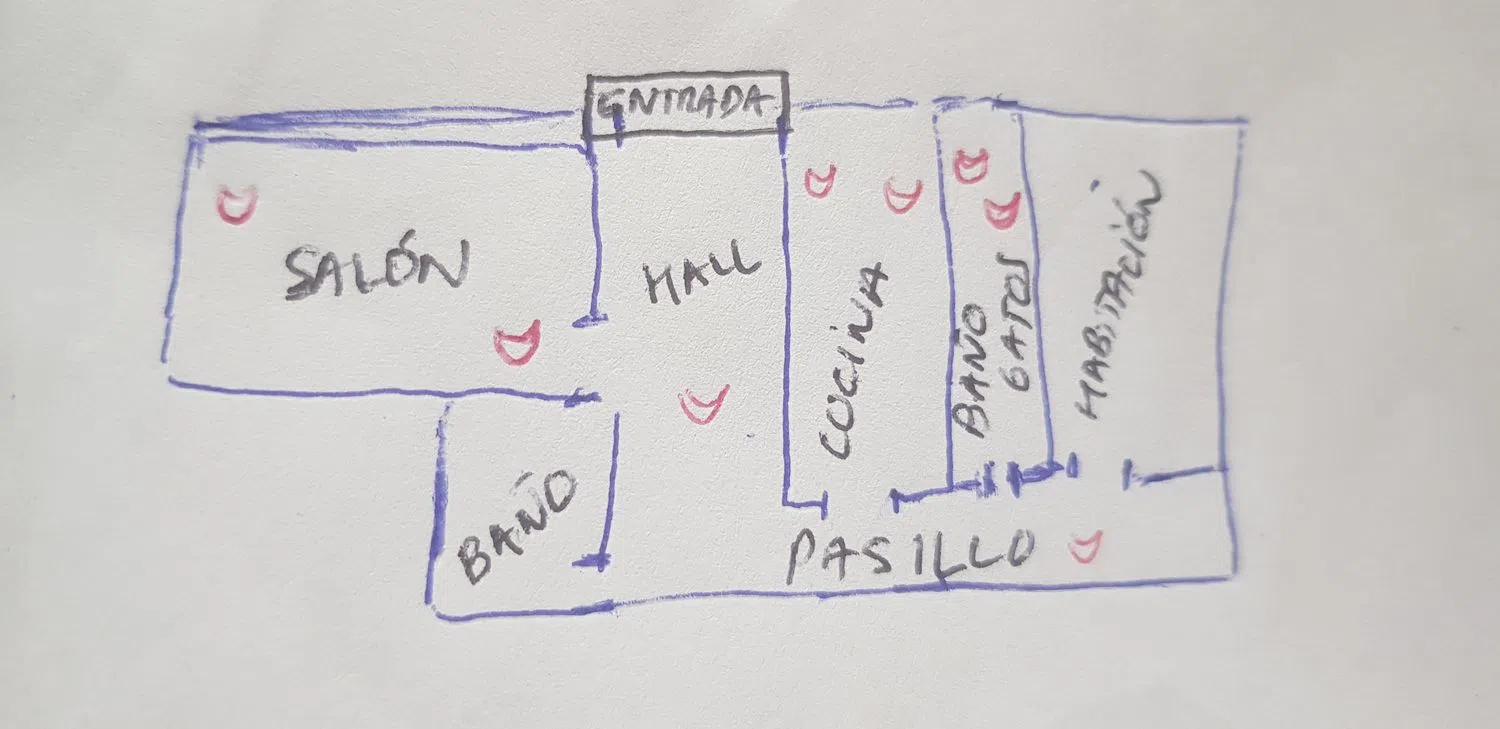 ENTRADA
SALÓN
HALL
COCINA
BAÑO
GATOS
HABITACIÓN
BAÑO
PASILLO